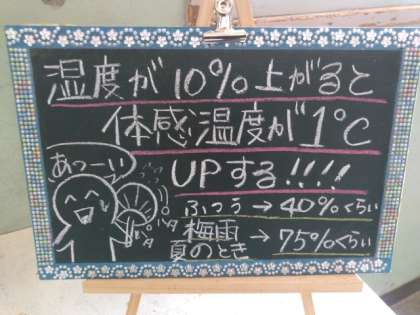 湿度が10%上がると
体感温度が1℃
UPする!!!!
あつーい
パタ
パタ
ふつう→40%くらい
梅雨
夏のとき→75%くらい